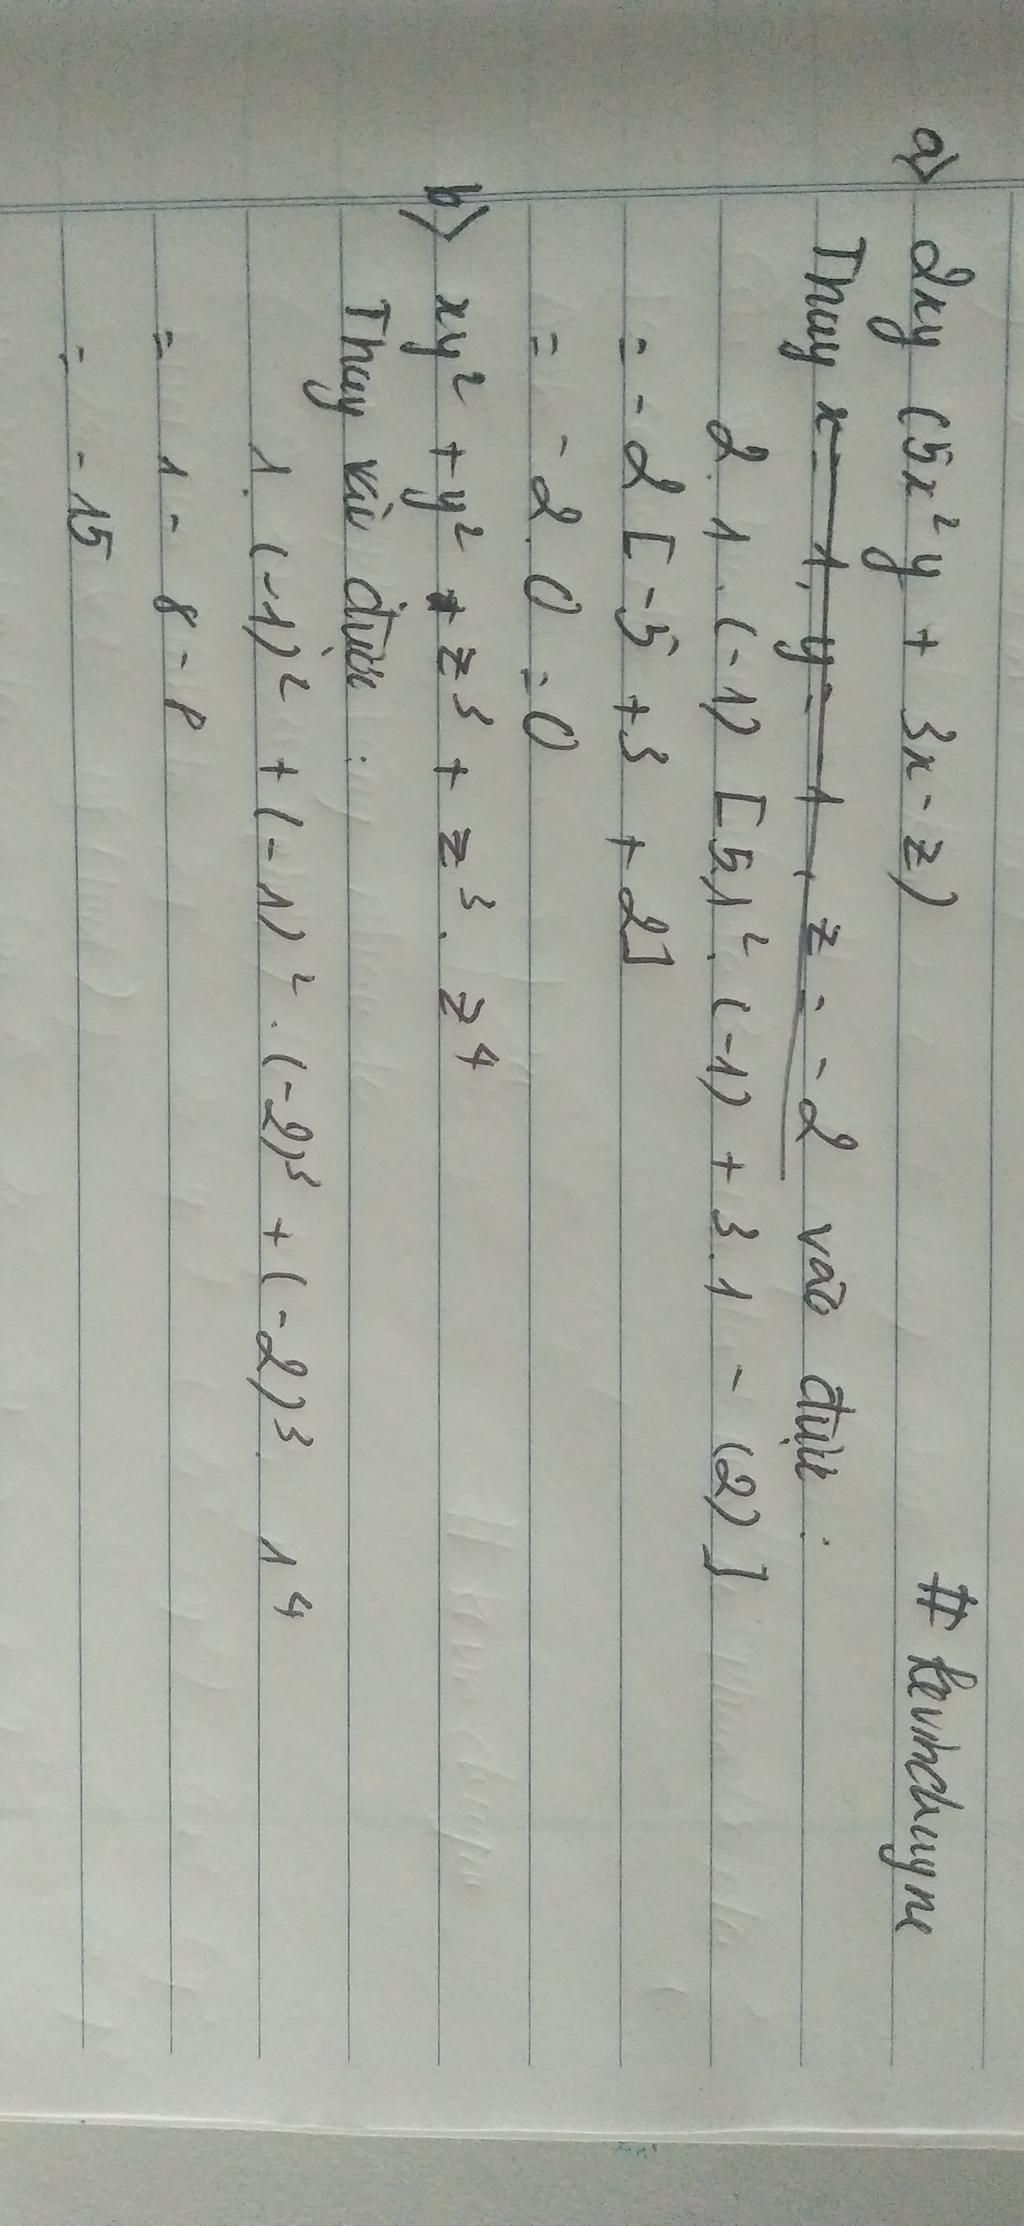 a) 2xy (5x²y + 3x - z) # kevinchuyne
Thay x = 1, y = -1, z = -2 vào được :
2. 1. (-1) [5.1². (-1) + 3.1 - (2)]
= -2 [-5 +3 + 2]
= -2. 0 = 0
b) xy² + y² . z³ + z³. z⁴
Thay vào được :
1. (-1)² + (-1)² . (-2)³ + (-2)³. 1⁴
= 1 - 8 - 8
= -15